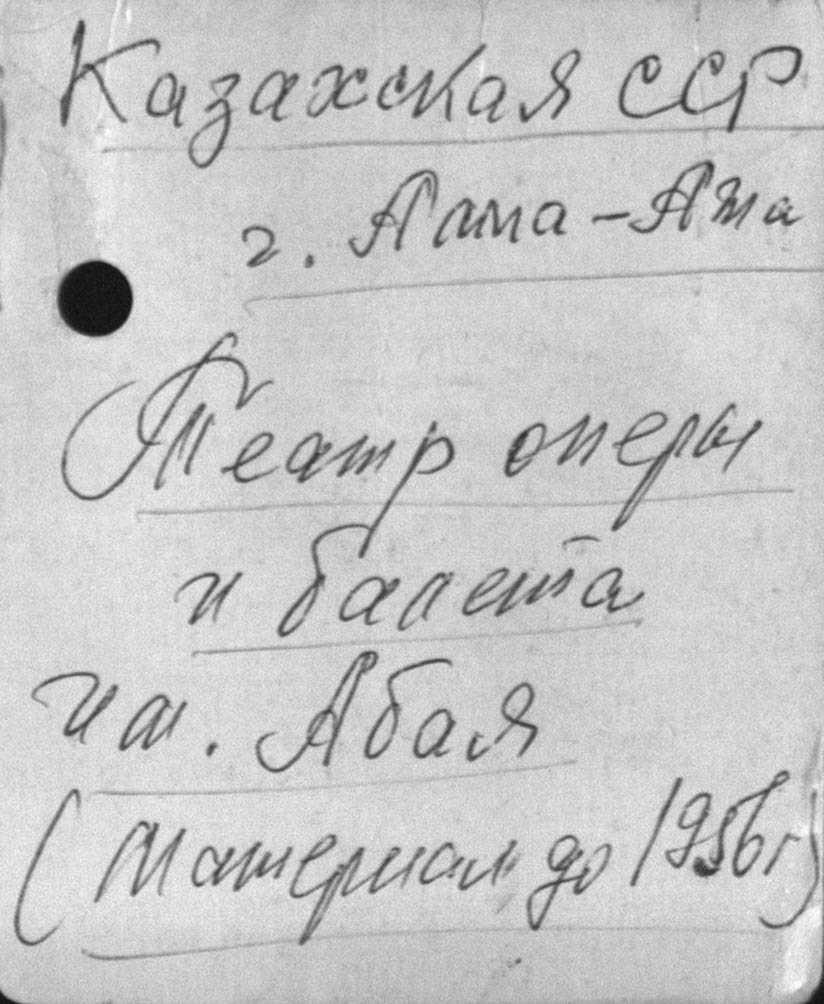 Казахская ССР
г. Алма-Ата
Театр оперы
и балета
им. Абая
(материал до 1956г)